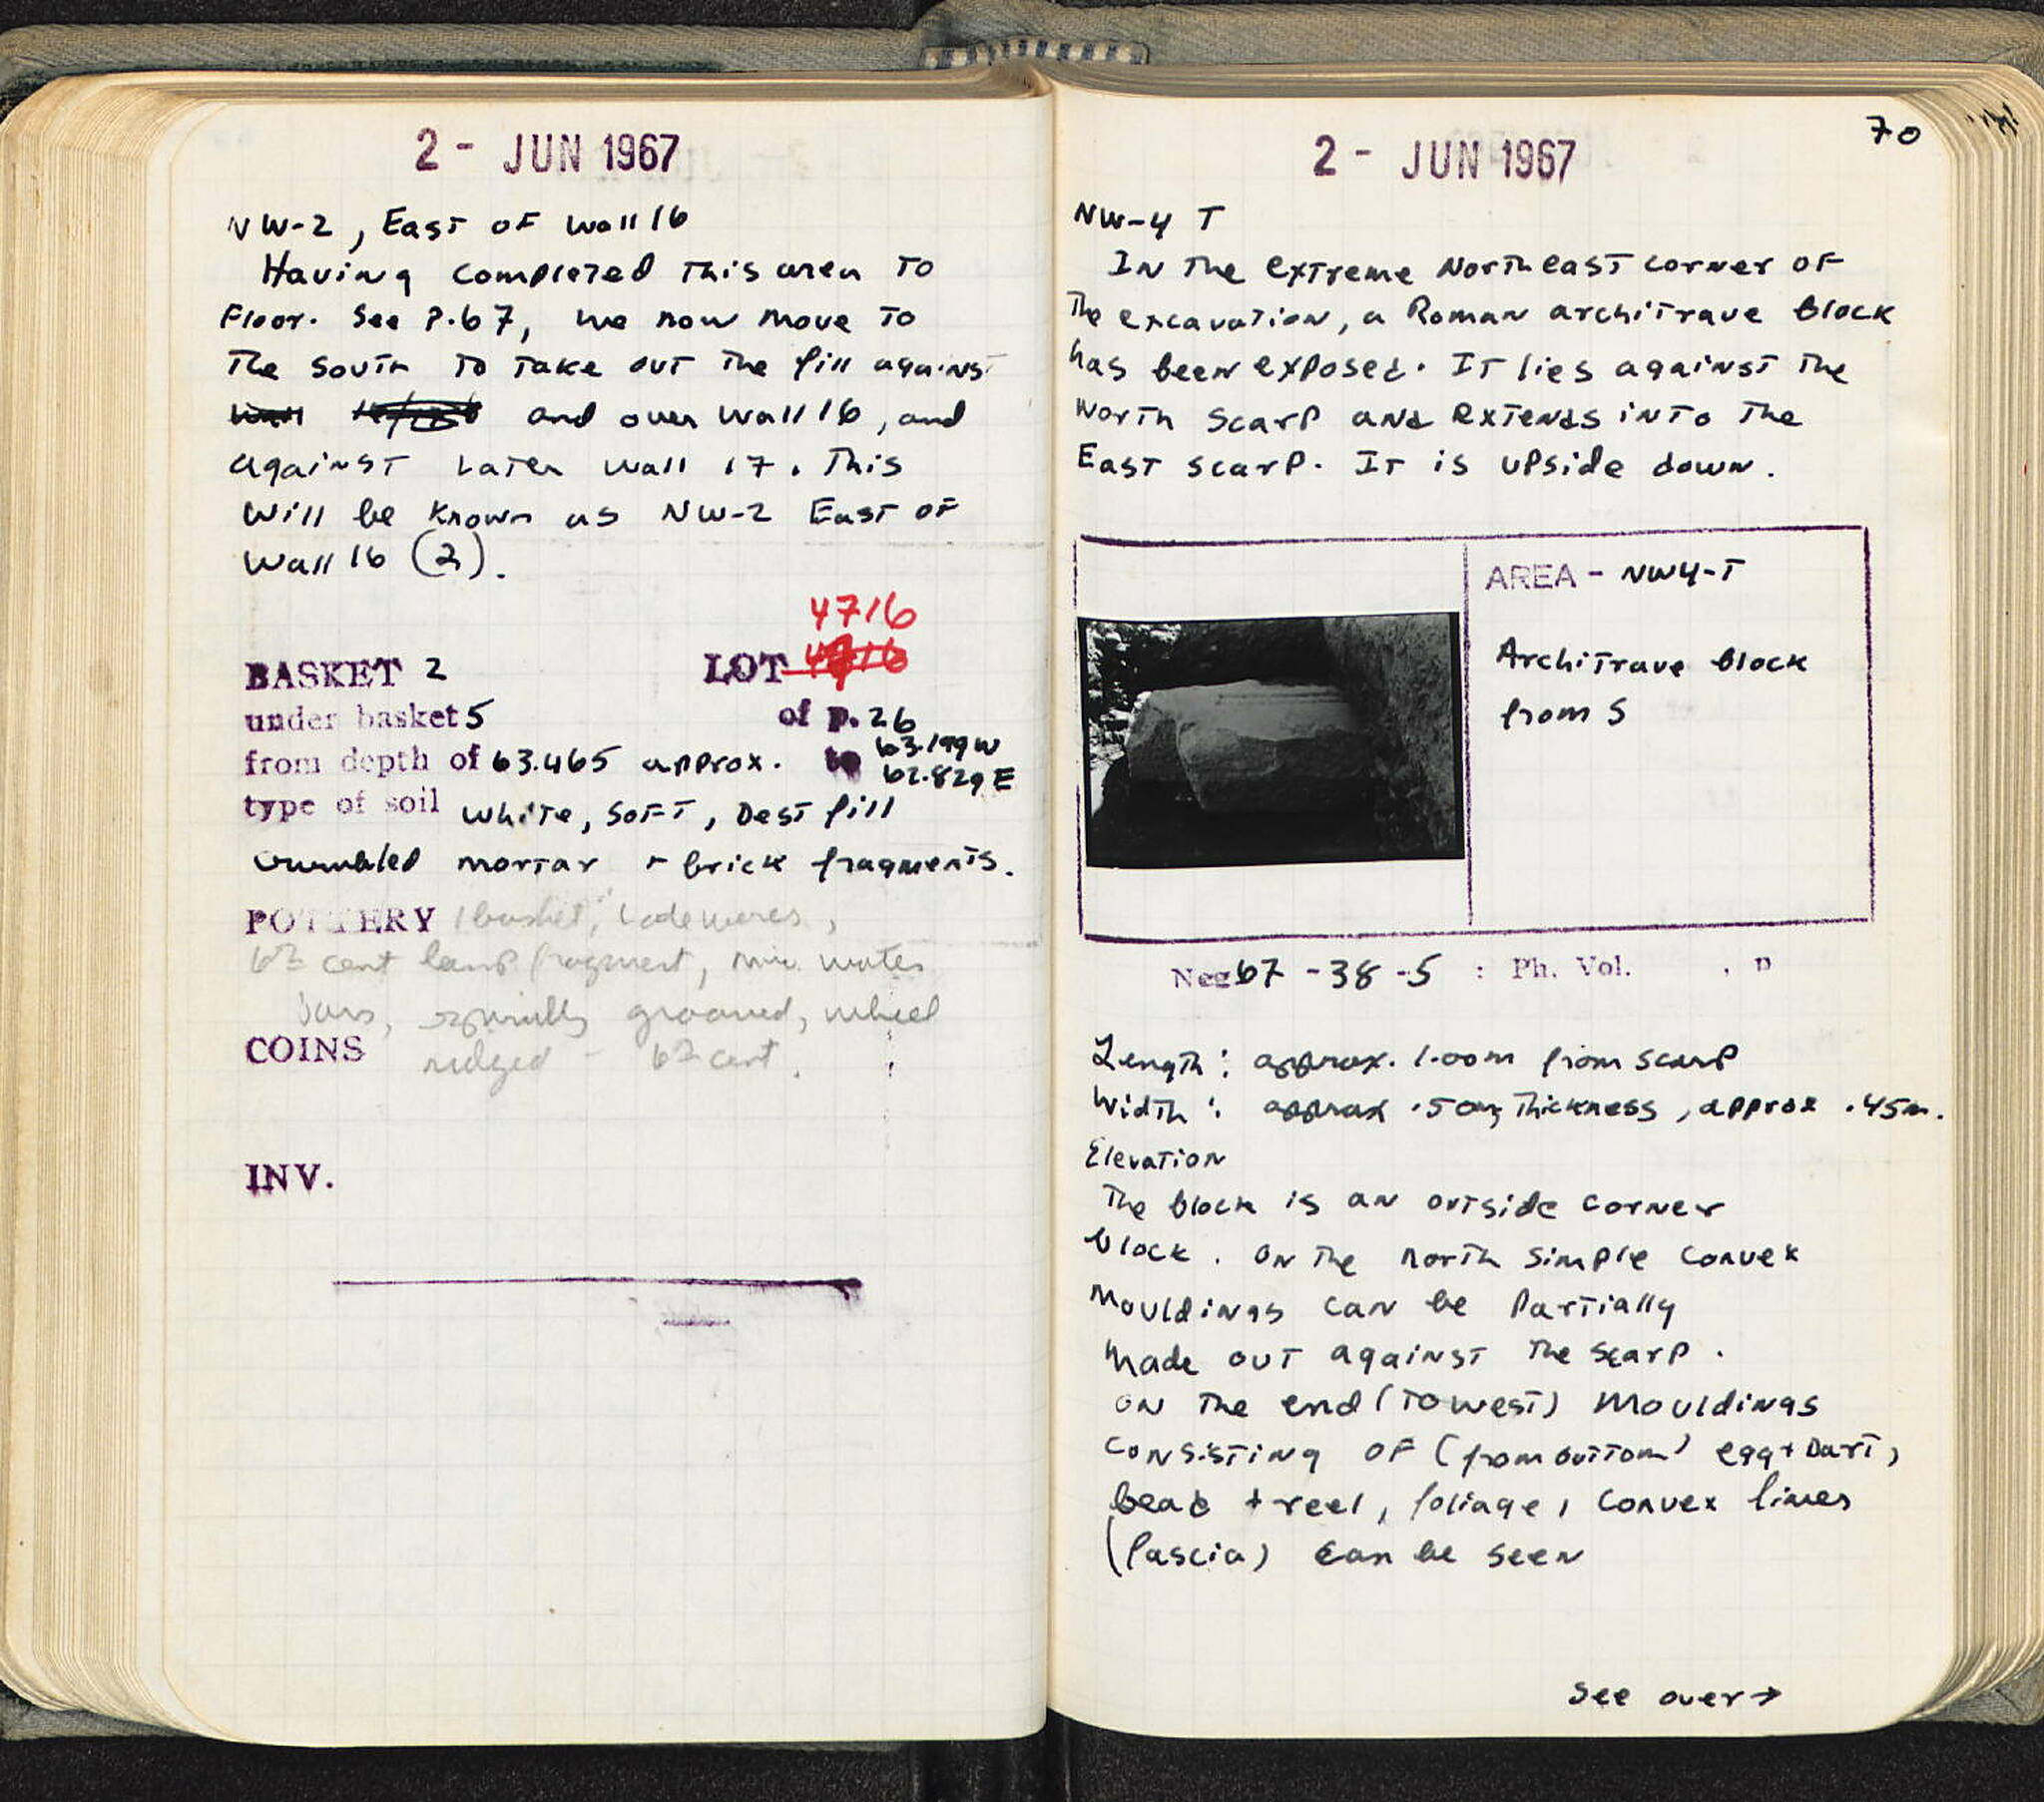 2 - JUN 1967
NW-2, East of Wall 16
Having completed this area to
Floor. See P.67, we now move to
The South to take out the fill against
and over Wall 16, and
against Later Wall 17. This
will be known as NW-2 East of
Wall 16 (2).
4716
BASKET 2 LOT
under basket 5 of p. 26
from depth of 63.465 approx. to 63.199 W
62.829 E
type of soil White, Soft, Dest fill
crumbled mortar + brick fragments.
POTTERY 1 basket,
6th cent lamp fragment,
jars, spirally grooved, wheel
COINS ridged - 6th cent.
INV.
70
2 - JUN 1967
NW-4 T
In the extreme Northeast corner of
The excavation, a Roman architrave block
has been exposed. It lies against the
North Scarp and extends into the
East scarp. It is upside down.
AREA - NW4-T
Architrave block
from S
Neg 67 -38 -5 : Ph. Vol. , p
Length: approx. 1.00m from scarp
Width: approx .50m, Thickness, approx .45m.
Elevation
The block is an outside corner
block. On the north simple convex
mouldings can be partially
made out against the scarp.
On the end (to west) mouldings
consisting of (from bottom) egg + Dart,
bead + reel, foliage, convex lines
(fascia) can be seen
See over →